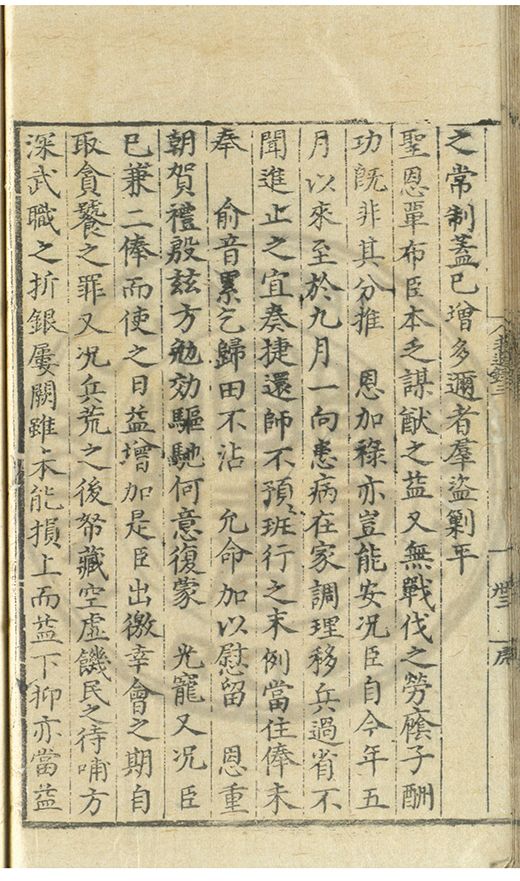 之常制蓋已增多邇者羣盜剿平
聖恩單布臣本乏謀猷之益又無戰伐之勞廕子酬
功旣非其分推　恩加祿亦豈能安况臣自今年五
月以來至於九月一向患病在家調理移兵過省不
聞進止之宜奏捷還師不預班行之末例當住俸未
奉　俞音累乞歸田不沾　允命加以慰留　恩重
朝賀禮殷玆方勉効驅馳何意復蒙　光寵又况臣
已兼二俸而使之日益增加是臣出徼幸會之期自
取貪饕之罪又况兵荒之後帑藏空虛饑民之待哺方
深武職之折銀屢闕雖不能損上而益下抑亦當益